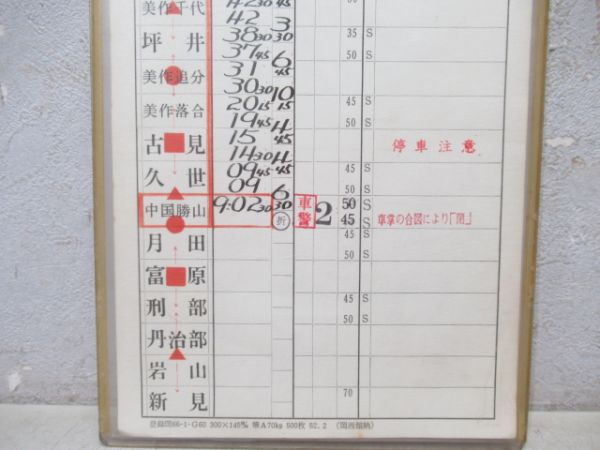 美作千代 42 30 45
42 3
坪井 38 30 30 35 S
37 45 6
美作追分 31 45
30 30 10
美作落合 20 15 15 45 S
19 45 4 50 S
古見 15 45 停車注意
14 30 4
久世 09 45 45 45 S
09 6 50 S
中国勝山 9:02 30 30 車警 2 50 S
折 45 S 車掌の合図により「閉」
月田 45 S
50 S
富原
刑部 45 S
50 S
丹治部
岩山
新見 70
300×145㎜ 500枚 52.2